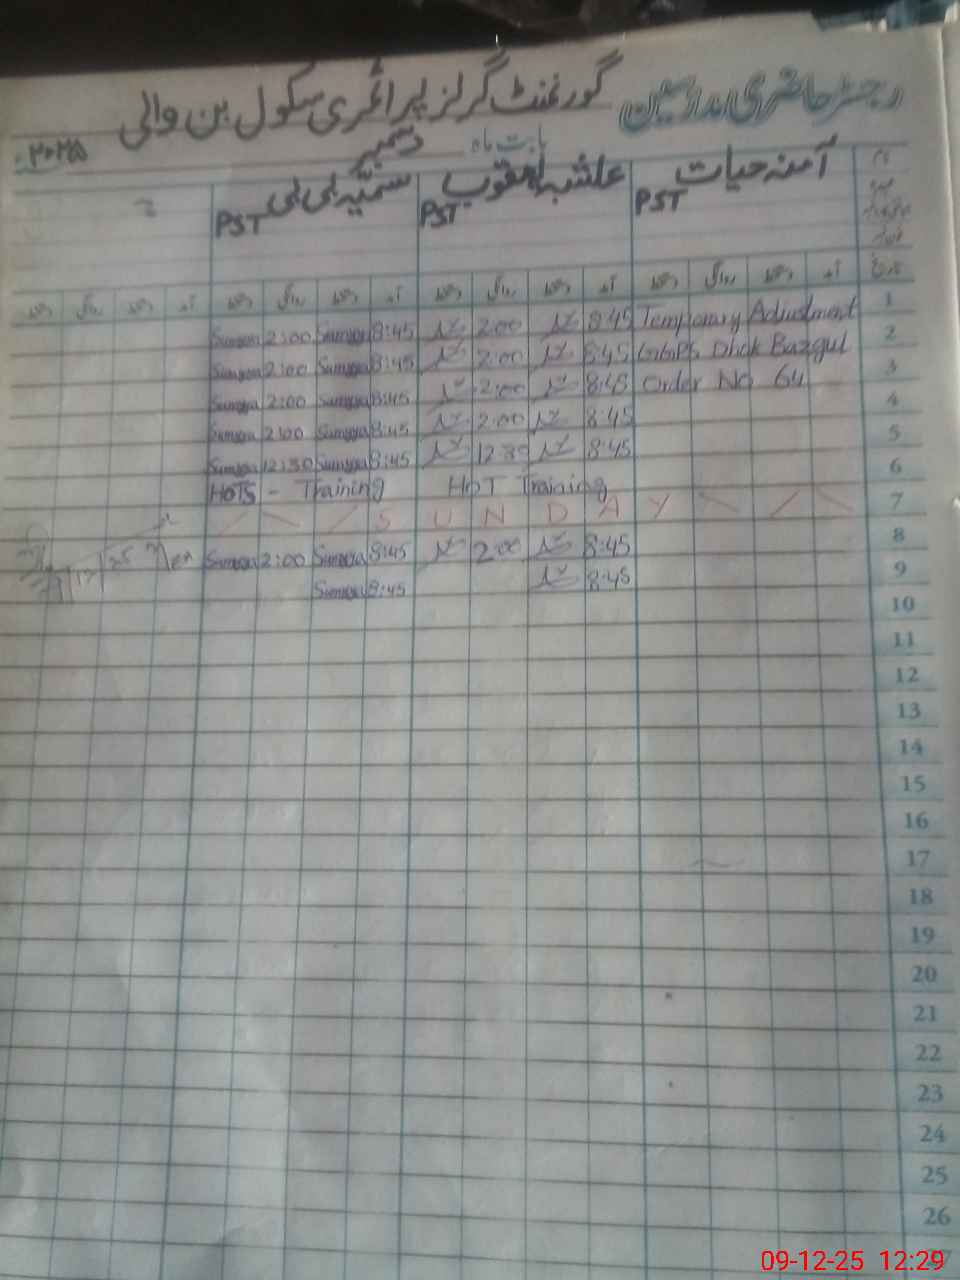 رجسٹر حاضری مدرسین گورنمنٹ گرلز پرائمری سکول بن والی
بابت ماہ دسمبر ۲۰۲۵
آمنہ حیات PST علشبہ یعقوب PST سمیّہ بی بی PST
تاریخ آمد دستخط روانگی دستخط آمد دستخط روانگی دستخط آمد دستخط روانگی دستخط آمد دستخط روانگی دستخط
1 Temporary Adjustment 8:45 2:00 8:45 Sumyya 2:00 Sumyya
2 GGPS Dhok Bazgul 8:45 2:00 8:45 Sumyya 2:00 Sumyya
3 Order No 64 8:45 2:00 8:45 Sumyya 2:00 Sumyya
4 8:45 2:00 8:45 Sumyya 2:00 Sumyya
5 8:45 12:30 8:45 Sumyya 12:30 Sumyya
6 HOT Training HOTS - Training
7 S U N D A Y
8 8:45 2:00 8:45 Sumyya 2:00 Sumyya
9 8:45 8:45 Sumyya
10
11
12
13
14
15
16
17
18
19
20
21
22
23
24
25
26
09-12-25 12:29